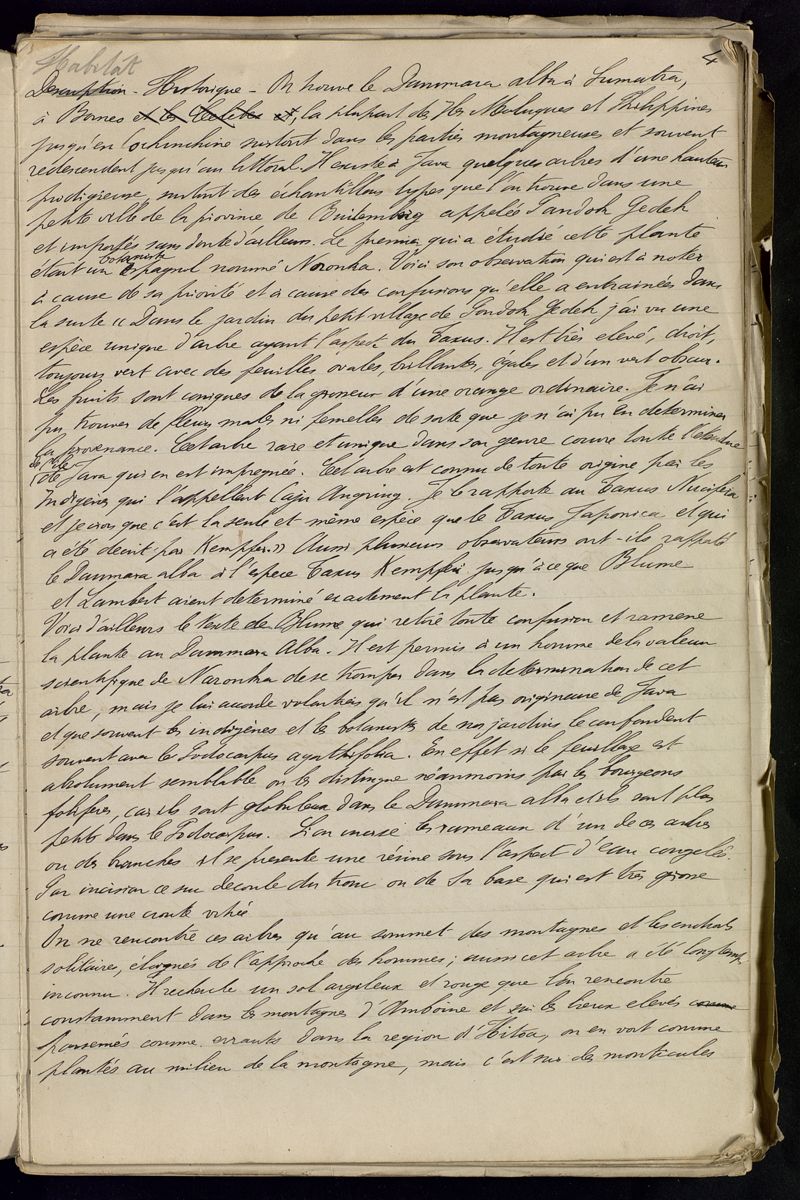 4
Habitat
Description - Historique - On trouve le Dammara alba à Sumatra,
à Borneo et les Celèbes et, la plupart des Iles Moluques et Philippines
jusqu'en Cochinchine surtout dans les parties montagneuses et souvent
redescendent jusqu'au littoral. Il existe à Java quelques arbres d'une hauteur
prodigieuse, surtout des échantillons types que l'on trouve dans une
petite ville de la province de appelée Pandok Gedeh
et importés sans doute d'ailleurs. Le premier qui a étudié cette plante
botaniste
était un espagnol nommé Noronha. Voici son observation qui est à noter
à cause de sa priorité et à cause des confusions qu'elle a entrainées dans
la suite « Dans le jardin du petit village de Pondok Gedeh j'ai vu une
espèce unique d'arbre ayant l'aspect du Taxus. Il est très elevé, droit,
toujours vert avec des feuilles ovales, brillantes, egales et d'un vert obscur.
Les fruits sont coniques de la grosseur d'une orange ordinaire. Je n'ai
pu trouver de fleurs males ni femelles de sorte que je n'ai pu en determiner
la provenance. Cet arbre rare et unique dans son genre couvre toute l'etendue
de l'Ile
de Java qui en est impregnée. Cet arbre est connu de toute origine par les
Indigènes qui l'appellent Caju Angring. Je le rapporte au Taxus Nucifera
et je crois que c'est la seule et même espèce que le Taxus Japonica et qui
a été décrit par Kempfer. » Aussi plusieurs observateurs ont-ils rapporté
le Dammara alba à l'espèce Taxus Kempferi jusqu'à ce que Blume
et Lambert aient determiné exactement la plante.
Voici d'ailleurs le texte de Blume qui retire toute confusion et ramene
la plante au Dammara Alba. Il est permis à un homme de la valeur
scientifique de Noronha de se tromper dans la determination de cet
arbre, mais je lui accorde volontiers qu'il n'est pas originaire de Java
et que souvent les indigènes et les botanistes de nos jardins le confondent
souvent avec le Podocarpus agathifolia. En effet si le feuillage est
absolument semblable on les distingue néanmoins par les bourgeons
foliifères, car ils sont globuleux dans le Dammara alba et ils sont plus
petits dans le Podocarpus. Si on incise les rameaux d'un de ces arbres
ou des branches il se presente une résine sous l'aspect d'eau congelée.
Par incision ce suc decoule du tronc ou de sa base qui est très grosse
comme une croute vitrée
On ne rencontre ces arbres qu'au sommet des montagnes et les endroits
solitaires, éloignés de l'approche des hommes; aussi cet arbre a été longtemps
inconnu. Il recherche un sol argileux et rouge que l'on rencontre
constamment dans les montagnes d'Amboine et sur les lieux elevés comme
parsemés comme errants dans la region d'Hitoe, on en voit comme
plantés au milieu de la montagne, mais c'est sur des monticules